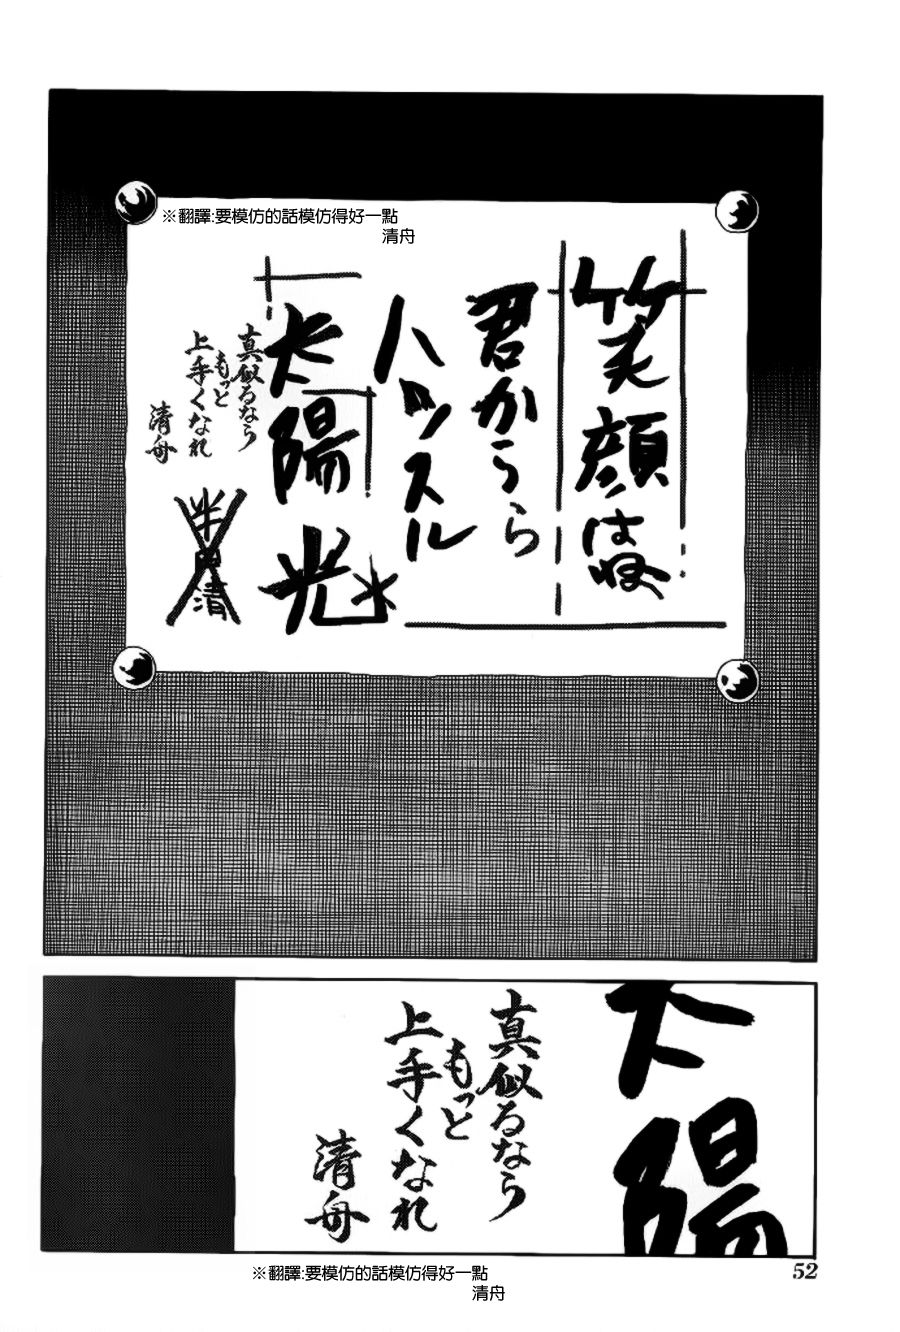 ※翻譯:要模仿的話模仿得好一點
清舟
笑顔は
君から
ハッスル
太陽光
真似るなら
もっと
上手くなれ
清舟
半田清
太陽
真似るなら
もっと
上手くなれ
清舟
※翻譯:要模仿的話模仿得好一點
清舟
52